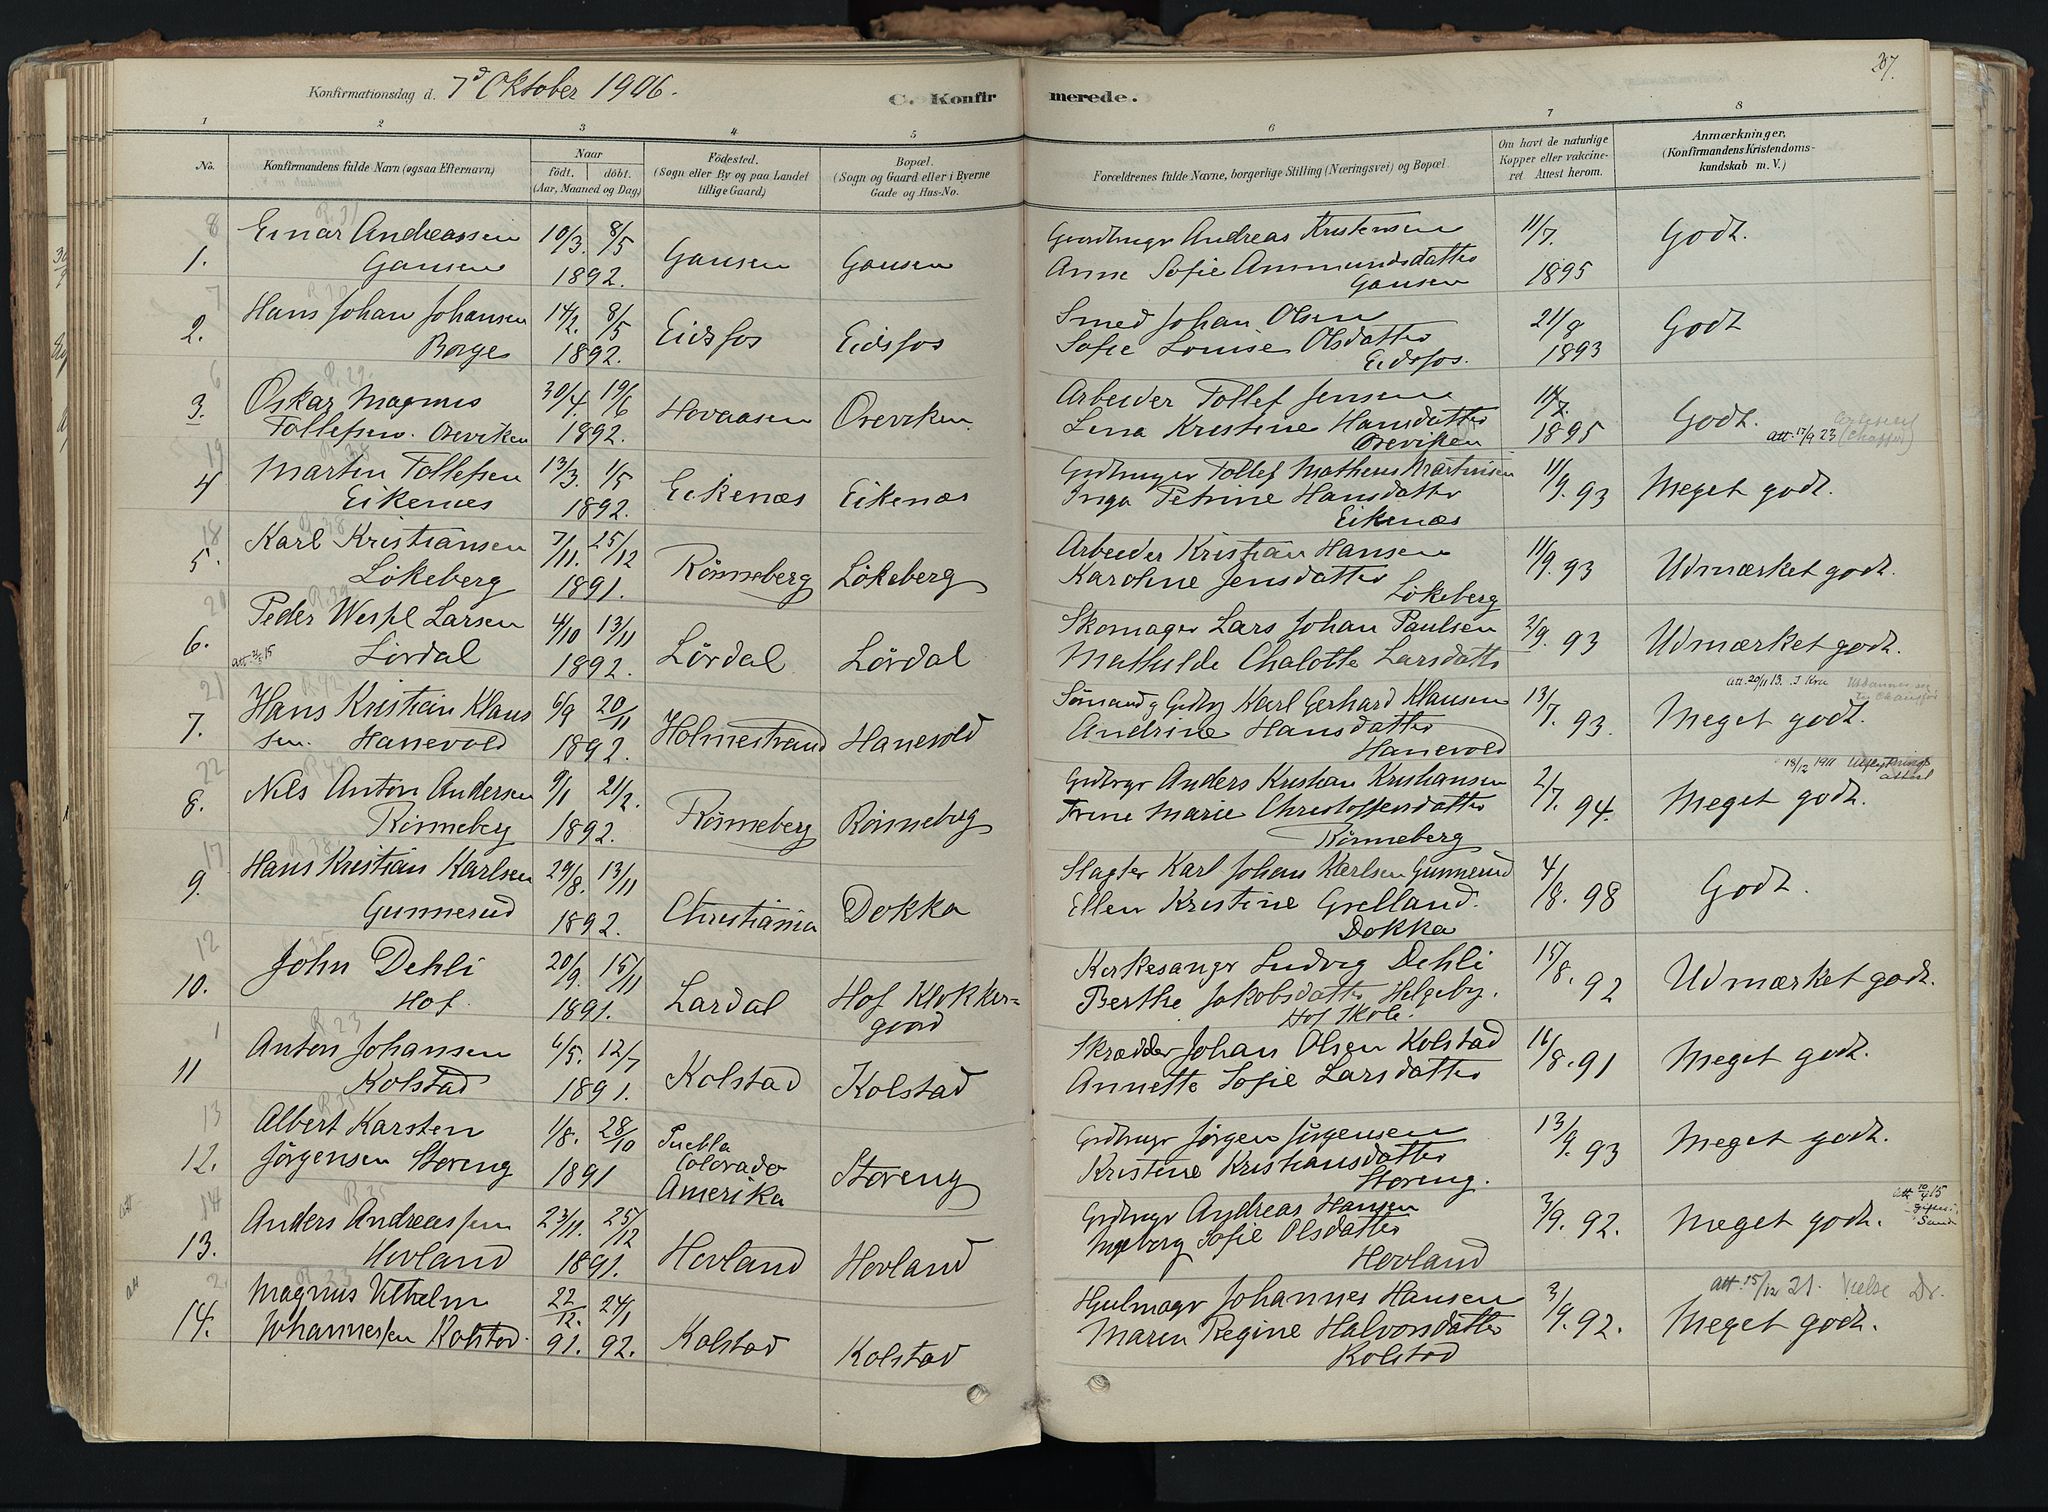 Konfirmationsdag d. 7d Oktober 1906.
C. Konfirmerede.
207.
1 2 3 4 5 6 7 8
No. Konfirmandens fulde Navn (ogsaa Efternavn) Naar født. døbt. (Aar, Maaned og Dag) Fødested. (Sogn eller By og paa Landet tillige Gaard) Bopæl. (Sogn og Gaard eller i Byerne Gade og Hus-No. Forældrenes fulde Navne, borgerlige Stilling (Næringsvei) og Bopæl. Om havt de naturlige Kopper eller vakcineret Attest herom. Anmærkninger, (Konfirmandens Kristendomskundskab m. V.)
8 R. 31
1. Einar Andreassen 10/3. 8/5 Gausen Gausen Gaardbrugr Andreas Kristensen 11/7. Godt.
Gausen 1892. Anne Sofie Ammundsdatter 1895
Gausen
7
2. Hans Johan Johansen 14/2. 8/5 Eidsfos Eidsfos Smed Johan Olsen 21/8 Godt
Borge 1892. Sofie Louise Olsdatter 1893
Eidsfos.
6 R. 29.
3. Oskar Magnus 30/4. 19/6 Hovaasen Oreviken Arbeider Tollef Jensen Godt.
Tollefsen. Oreviken 1892. Lina Kristine Hansdatter 1895 Att. 17/9 23
Oreviken
19
4 Martin Tollefsen 13/3. 1/5 Eikenæs Eikenæs Grdbruger Tollef Matheus Martinsen 11/9. 93 Meget godt.
Eikenæs 1892. Inga Petrine Hansdatter
Eikenæs
18 R. 38
5. Karl Kristiansen 7/11. 25/12 Rønneberg Løkeberg Arbeider Kristian Hansen 11/9. 93 Udmærket godt.
Løkeberg 1891. Karoline Jensdatter
Løkeberg
20 R. 39
6. Peder Wespl Larsen 4/10 13/11 Lørdal Lørdal Skomager Lars Johan Paulsen 2/9. 93 Udmærket godt.
Lørdal 1892. Mathilde Chalotte Larsdatter
21 R 42 Att. 20/11 13.
7. Hans Kristian Klaus 6/9 20/11 Holmestrand Hanevold Sømand g Grdbr Karl Gerhard Klausen 13/7. 93. Meget godt.
sen. Hanevold 1892. Andrine Hansdatter
Hanevold
22 R 43 18/12 1911
8. Nils Anton Andersen 9/1 21/2. Rønneberg Rønneberg Grdbrgr Anders Kristian Kristiansen 2/7. 94. Meget godt.
Rønneberg 1892. Trine Marie Christoffersdatter
Rønneberg
17 R 38
9. Hans Kristian Karlsen 29/8. 13/11 Christiania Dokka Slagter Karl Johan Karlsen Gunnerud 4/8. 98 Godt.
Gunnerud 1892. Ellen Kristine Grelland.
Dokka
12
10. John Dehli 20/9. 15/11 Lardal Hof Klokker= Kirkesangr Ludvig Dehli 15/8. 92 Udmærket godt.
Hof. 1891. gaard Berthe Jakobsdatter Helgeby.
Hof Skole.
1 R 23
11 Anton Johansen 6/5. 12/7 Kolstad Kolstad Skrædder Johan Olsen Kolstad 16/8. 91 Meget godt.
Kolstad 1891. Annette Sofie Larsdatter
13
12. Albert Karsten 1/8. 28/10 Puebla Storeng Grdbrugr Jørgen Jørgensen 13/9. 93 Meget godt.
Jørgensen Storeng 1891 Colorado Kristine Kristiansdatter
Amerika Storeng.
14 R 35 Att. 10/4 15
13. Anders Andreassen 23/11. 25/12 Hovland Hovland Grdbrugr Andreas Hansen 3/9. 92. Meget godt.
Hovland 1891. Ingeborg Sofie Olsdatter
Hovland
2. R. 23 Att. 15/12 21. Vielse Dr.
14. Magnus Vilhelm 22/12. 24/1 Kolstad Kolstad Hjulmagr Johannes Hansen 3/9. 92. Meget godt.
Johannessen Kolstad. 91. 92. Maren Regine Halvorsdatter
Kolstad